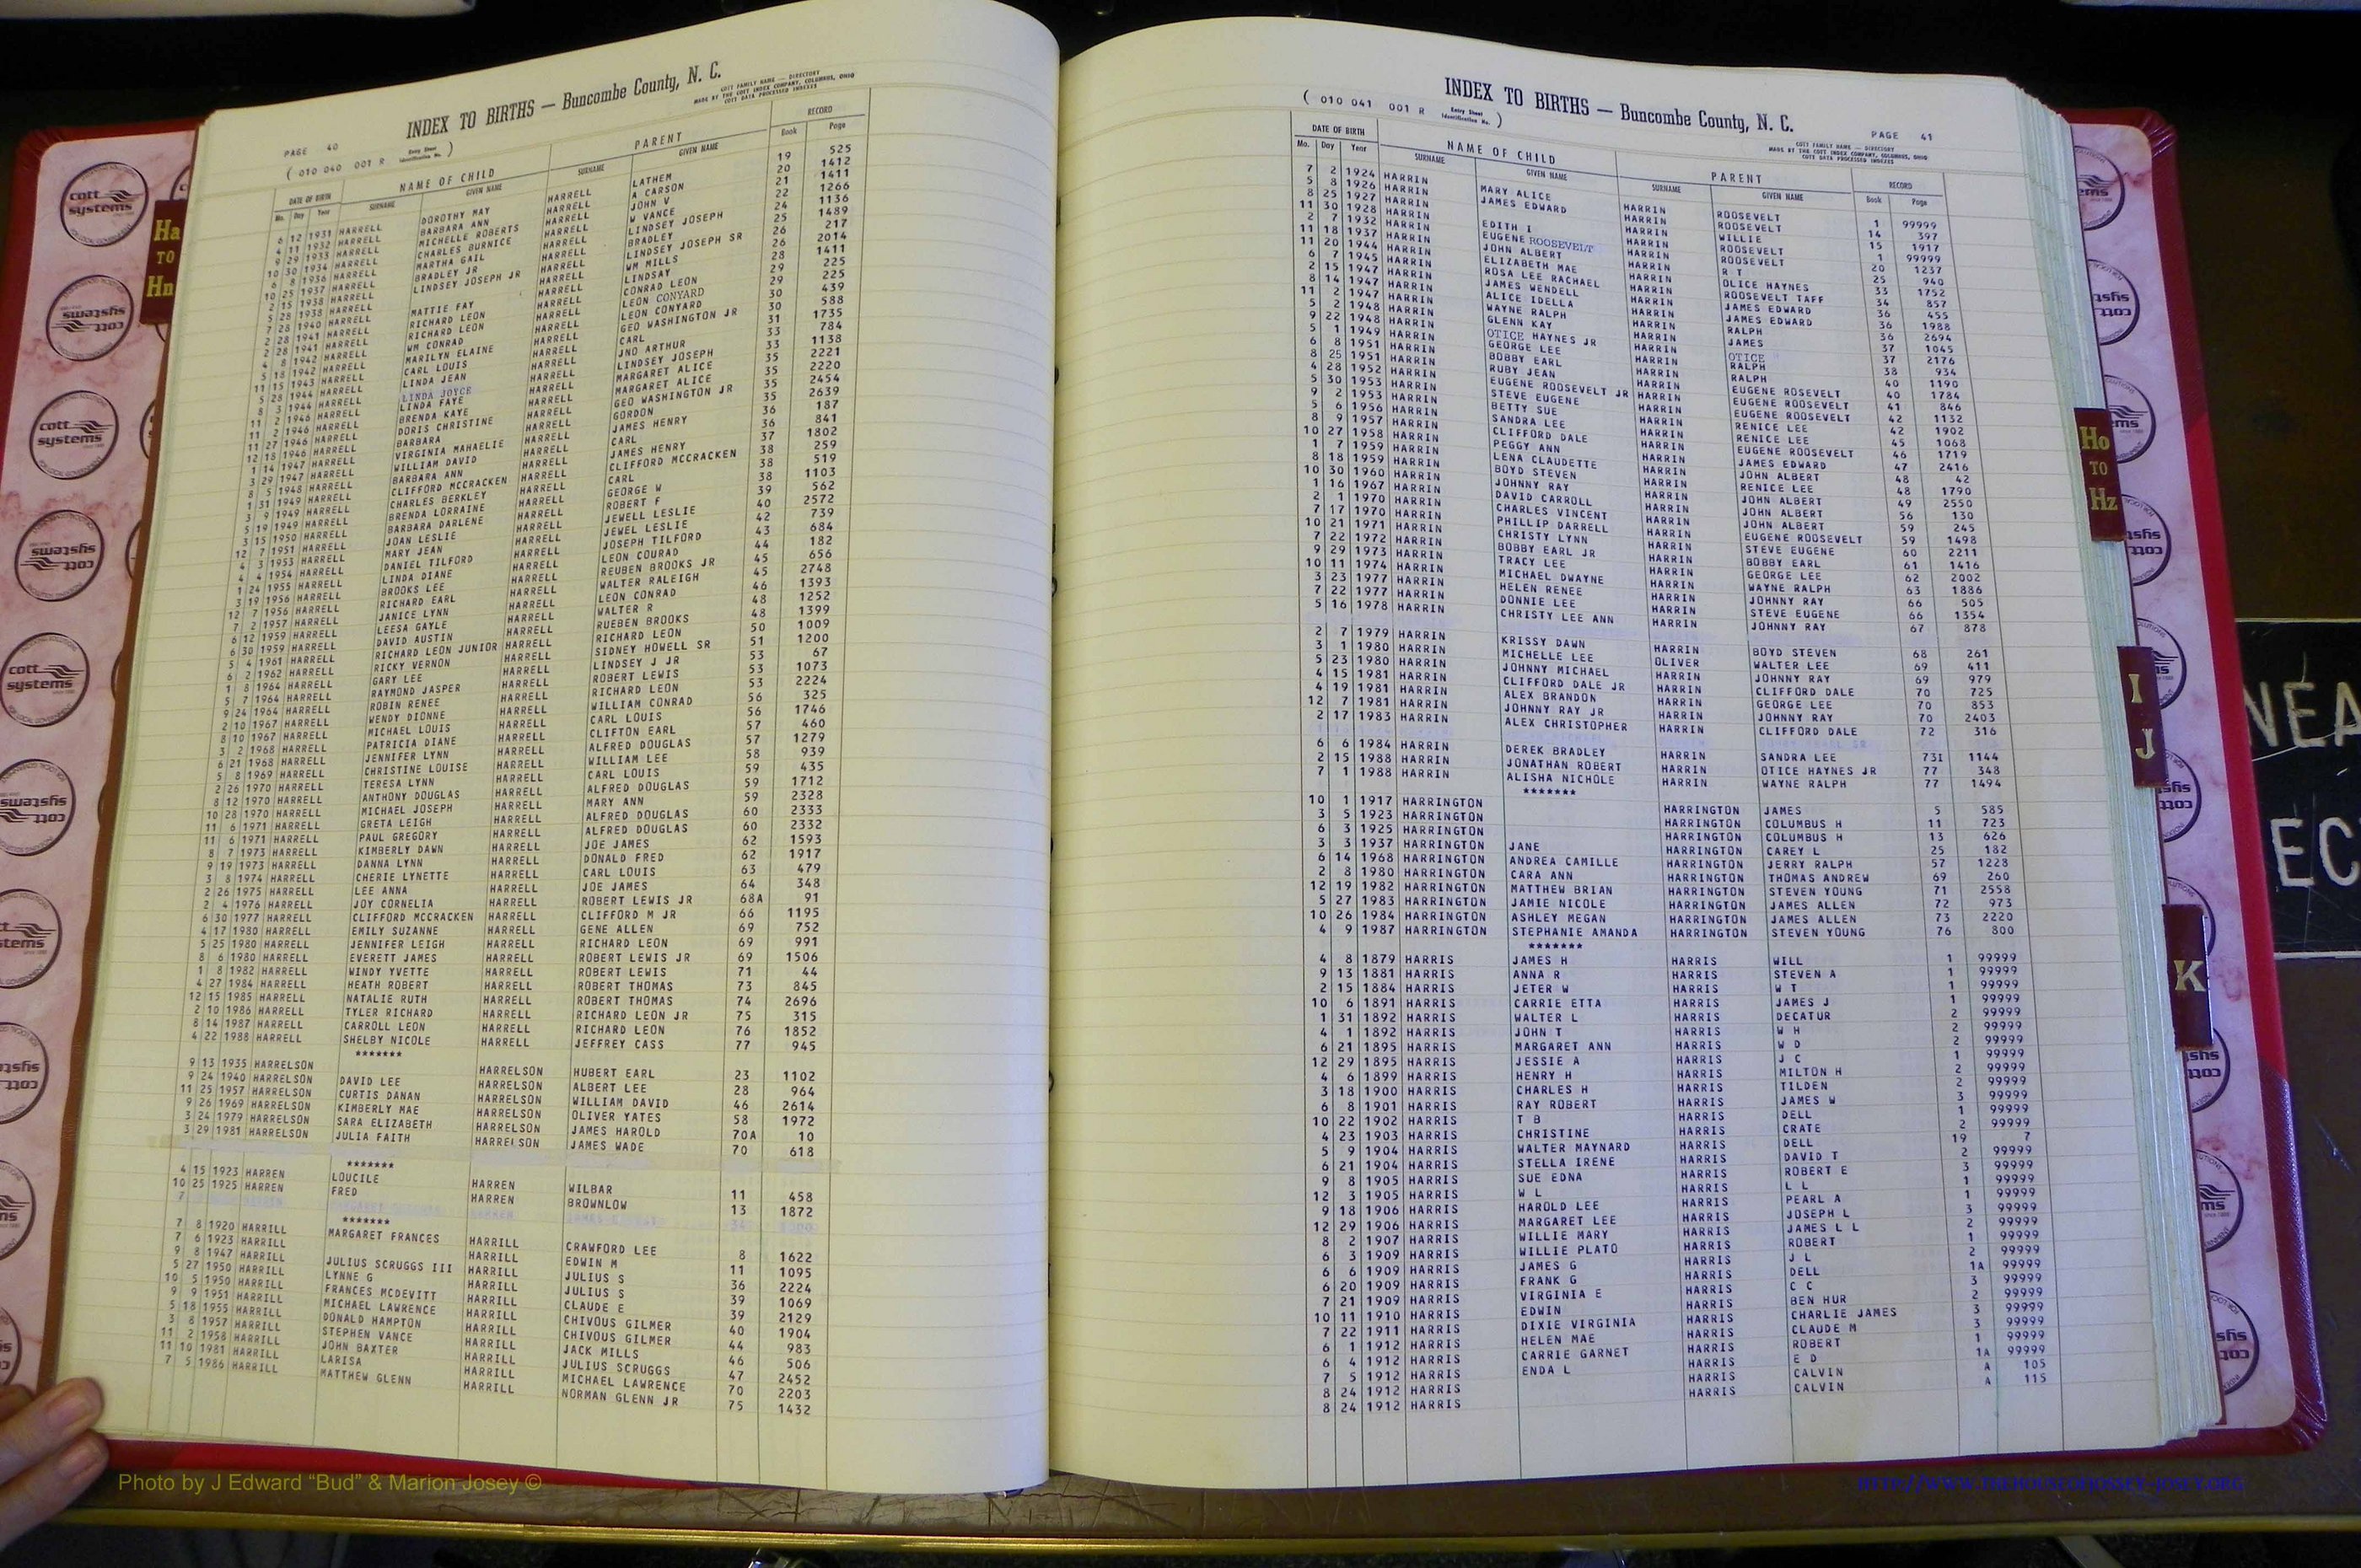 INDEX TO BIRTHS — Buncombe County, N. C.
COTT FAMILY NAME — DIRECTORY
MADE BY THE COTT INDEX COMPANY, COLUMBUS, OHIO
COTT DATA PROCESSED INDEXES
PAGE 40
( 010 040 001 R Entry Sheet Identification No. )
DATE OF BIRTH NAME OF CHILD PARENT RECORD
Mo. Day Year SURNAME GIVEN NAME SURNAME GIVEN NAME Book Page
6 12 1931 HARRELL DOROTHY MAY HARRELL LATHEM 19 525
4 11 1932 HARRELL BARBARA ANN HARRELL A CARSON 20 1412
9 29 1933 HARRELL MICHELLE ROBERTS HARRELL JOHN V 21 1411
10 30 1934 HARRELL CHARLES BURNICE HARRELL W VANCE 22 1266
6 8 1936 HARRELL MARTHA GAIL HARRELL LINDSEY JOSEPH 24 1136
10 25 1937 HARRELL BRADLEY JR HARRELL BRADLEY 25 1489
2 15 1938 HARRELL LINDSEY JOSEPH JR HARRELL LINDSEY JOSEPH SR 26 217
5 28 1938 HARRELL HARRELL WM MILLS 26 2014
7 28 1940 HARRELL MATTIE FAY HARRELL LINDSAY 28 1411
2 28 1941 HARRELL RICHARD LEON HARRELL CONRAD LEON 29 225
2 28 1941 HARRELL RICHARD LEON HARRELL LEON CONYARD 29 225
4 8 1942 HARRELL WM CONRAD HARRELL LEON CONYARD 30 439
5 18 1942 HARRELL MARILYN ELAINE HARRELL GEO WASHINGTON JR 30 588
11 15 1943 HARRELL CARL LOUIS HARRELL CARL 31 1735
5 28 1944 HARRELL LINDA JEAN HARRELL JNO ARTHUR 33 784
8 3 1944 HARRELL LINDA JOYCE HARRELL LINDSEY JOSEPH 33 1138
11 2 1946 HARRELL LINDA FAYE HARRELL MARGARET ALICE 35 2221
11 2 1946 HARRELL BRENDA KAYE HARRELL MARGARET ALICE 35 2220
11 27 1946 HARRELL DORIS CHRISTINE HARRELL GEO WASHINGTON JR 35 2454
12 18 1946 HARRELL BARBARA HARRELL GORDON 35 2639
1 14 1947 HARRELL VIRGINIA MAHAELIE HARRELL JAMES HENRY 36 187
3 29 1947 HARRELL WILLIAM DAVID HARRELL CARL 36 841
8 5 1948 HARRELL BARBARA ANN HARRELL JAMES HENRY 37 1802
1 31 1949 HARRELL CLIFFORD MCCRACKEN HARRELL CLIFFORD MCCRACKEN 38 259
3 9 1949 HARRELL CHARLES BERKLEY HARRELL CARL 38 519
5 19 1949 HARRELL BRENDA LORRAINE HARRELL GEORGE W 38 1103
3 15 1950 HARRELL BARBARA DARLENE HARRELL ROBERT F 39 562
12 7 1951 HARRELL JOAN LESLIE HARRELL JEWELL LESLIE 40 2572
4 3 1953 HARRELL MARY JEAN HARRELL JEWEL LESLIE 42 739
4 4 1954 HARRELL DANIEL TILFORD HARRELL JOSEPH TILFORD 43 684
1 24 1955 HARRELL LINDA DIANE HARRELL LEON COURAD 44 182
3 19 1956 HARRELL BROOKS LEE HARRELL REUBEN BROOKS JR 45 656
12 7 1956 HARRELL RICHARD EARL HARRELL WALTER RALEIGH 45 2748
7 2 1957 HARRELL JANICE LYNN HARRELL LEON CONRAD 46 1393
6 12 1959 HARRELL LEESA GAYLE HARRELL WALTER R 48 1252
6 30 1959 HARRELL DAVID AUSTIN HARRELL RUEBEN BROOKS 48 1399
5 4 1961 HARRELL RICHARD LEON JUNIOR HARRELL RICHARD LEON 50 1009
6 2 1962 HARRELL RICKY VERNON HARRELL SIDNEY HOWELL SR 51 1200
1 8 1964 HARRELL GARY LEE HARRELL LINDSEY J JR 53 67
5 7 1964 HARRELL RAYMOND JASPER HARRELL ROBERT LEWIS 53 1073
9 24 1964 HARRELL ROBIN RENEE HARRELL RICHARD LEON 53 2224
2 10 1967 HARRELL WENDY DIONNE HARRELL WILLIAM CONRAD 56 325
8 10 1967 HARRELL MICHAEL LOUIS HARRELL CARL LOUIS 56 1746
3 2 1968 HARRELL PATRICIA DIANE HARRELL CLIFTON EARL 57 460
6 21 1968 HARRELL JENNIFER LYNN HARRELL ALFRED DOUGLAS 57 1279
5 8 1969 HARRELL CHRISTINE LOUISE HARRELL WILLIAM LEE 58 939
2 26 1970 HARRELL TERESA LYNN HARRELL CARL LOUIS 59 435
8 12 1970 HARRELL ANTHONY DOUGLAS HARRELL ALFRED DOUGLAS 59 1712
10 28 1970 HARRELL MICHAEL JOSEPH HARRELL MARY ANN 59 2328
11 6 1971 HARRELL GRETA LEIGH HARRELL ALFRED DOUGLAS 60 2333
11 6 1971 HARRELL PAUL GREGORY HARRELL ALFRED DOUGLAS 60 2332
8 7 1973 HARRELL KIMBERLY DAWN HARRELL JOE JAMES 62 1593
9 19 1973 HARRELL DANNA LYNN HARRELL DONALD FRED 62 1917
3 8 1974 HARRELL CHERIE LYNETTE HARRELL CARL LOUIS 63 479
2 26 1975 HARRELL LEE ANNA HARRELL JOE JAMES 64 348
2 4 1976 HARRELL JOY CORNELIA HARRELL ROBERT LEWIS JR 68A 91
6 30 1977 HARRELL CLIFFORD MCCRACKEN HARRELL CLIFFORD M JR 66 1195
4 17 1980 HARRELL EMILY SUZANNE HARRELL GENE ALLEN 69 752
5 25 1980 HARRELL JENNIFER LEIGH HARRELL RICHARD LEON 69 991
8 6 1980 HARRELL EVERETT JAMES HARRELL ROBERT LEWIS JR 69 1506
1 8 1982 HARRELL WINDY YVETTE HARRELL ROBERT LEWIS 71 44
4 27 1984 HARRELL HEATH ROBERT HARRELL ROBERT THOMAS 73 845
12 15 1985 HARRELL NATALIE RUTH HARRELL ROBERT THOMAS 74 2696
2 10 1986 HARRELL TYLER RICHARD HARRELL RICHARD LEON JR 75 315
8 14 1987 HARRELL CARROLL LEON HARRELL RICHARD LEON 76 1852
4 22 1988 HARRELL SHELBY NICOLE HARRELL JEFFREY CASS 77 945
*******
9 13 1935 HARRELSON HARRELSON HUBERT EARL 23 1102
9 24 1940 HARRELSON DAVID LEE HARRELSON ALBERT LEE 28 964
11 25 1957 HARRELSON CURTIS DANAN HARRELSON WILLIAM DAVID 46 2614
9 26 1969 HARRELSON KIMBERLY MAE HARRELSON OLIVER YATES 58 1972
3 24 1979 HARRELSON SARA ELIZABETH HARRELSON JAMES HAROLD 70A 10
3 29 1981 HARRELSON JULIA FAITH HARRELSON JAMES WADE 70 618
*******
4 15 1923 HARREN LOUCILE HARREN WILBAR 11 458
10 25 1925 HARREN FRED HARREN BROWNLOW 13 1872
*******
7 8 1920 HARRILL MARGARET FRANCES HARRILL CRAWFORD LEE 8 1622
7 6 1923 HARRILL HARRILL EDWIN M 11 1095
9 8 1947 HARRILL JULIUS SCRUGGS III HARRILL JULIUS S 36 2224
5 27 1950 HARRILL LYNNE G HARRILL JULIUS S 39 1069
10 5 1950 HARRILL FRANCES MCDEVITT HARRILL CLAUDE E 39 2129
9 9 1951 HARRILL MICHAEL LAWRENCE HARRILL CHIVOUS GILMER 40 1904
5 18 1955 HARRILL DONALD HAMPTON HARRILL CHIVOUS GILMER 44 983
3 8 1957 HARRILL STEPHEN VANCE HARRILL JACK MILLS 46 506
11 2 1958 HARRILL JOHN BAXTER HARRILL JULIUS SCRUGGS 47 2452
11 10 1981 HARRILL LARISA HARRILL MICHAEL LAWRENCE 70 2203
7 5 1986 HARRILL MATTHEW GLENN HARRILL NORMAN GLENN JR 75 1432
INDEX TO BIRTHS — Buncombe County, N. C.
( 010 041 001 R Entry Sheet Identification No. )
PAGE 41
COTT FAMILY NAME — DIRECTORY
MADE BY THE COTT INDEX COMPANY, COLUMBUS, OHIO
COTT DATA PROCESSED INDEXES
DATE OF BIRTH NAME OF CHILD PARENT RECORD
Mo. Day Year SURNAME GIVEN NAME SURNAME GIVEN NAME Book Page
7 2 1924 HARRIN MARY ALICE HARRIN ROOSEVELT 1 99999
5 8 1926 HARRIN JAMES EDWARD HARRIN ROOSEVELT 14 397
8 25 1927 HARRIN HARRIN WILLIE 15 1917
11 30 1928 HARRIN EDITH I HARRIN ROOSEVELT 1 99999
2 7 1932 HARRIN EUGENE ROOSEVELT HARRIN ROOSEVELT 20 1237
11 18 1937 HARRIN JOHN ALBERT HARRIN R T 25 940
11 20 1944 HARRIN ELIZABETH MAE HARRIN OLICE HAYNES 33 1752
6 7 1945 HARRIN ROSA LEE RACHAEL HARRIN ROOSEVELT TAFF 34 857
2 15 1947 HARRIN JAMES WENDELL HARRIN JAMES EDWARD 36 455
8 14 1947 HARRIN ALICE IDELLA HARRIN JAMES EDWARD 36 1988
11 2 1947 HARRIN WAYNE RALPH HARRIN RALPH 36 2694
5 2 1948 HARRIN GLENN KAY HARRIN JAMES 37 1045
9 22 1948 HARRIN OTICE HAYNES JR HARRIN OTICE 37 2176
5 1 1949 HARRIN GEORGE LEE HARRIN RALPH 38 934
6 8 1951 HARRIN BOBBY EARL HARRIN RALPH 40 1190
8 25 1951 HARRIN RUBY JEAN HARRIN EUGENE ROSEVELT 40 1784
4 28 1952 HARRIN EUGENE ROOSEVELT JR HARRIN EUGENE ROOSEVELT 41 846
5 30 1953 HARRIN STEVE EUGENE HARRIN EUGENE ROOSEVELT 42 1132
9 2 1953 HARRIN BETTY SUE HARRIN RENICE LEE 42 1902
5 6 1956 HARRIN SANDRA LEE HARRIN RENICE LEE 45 1068
8 9 1957 HARRIN CLIFFORD DALE HARRIN EUGENE ROOSEVELT 46 1719
10 27 1958 HARRIN PEGGY ANN HARRIN JAMES EDWARD 47 2416
1 7 1959 HARRIN LENA CLAUDETTE HARRIN JOHN ALBERT 48 42
8 18 1959 HARRIN BOYD STEVEN HARRIN RENICE LEE 48 1790
10 30 1960 HARRIN JOHNNY RAY HARRIN JOHN ALBERT 49 2550
1 16 1967 HARRIN DAVID CARROLL HARRIN JOHN ALBERT 56 130
2 1 1970 HARRIN CHARLES VINCENT HARRIN JOHN ALBERT 59 245
7 17 1970 HARRIN PHILLIP DARRELL HARRIN EUGENE ROOSEVELT 59 1498
10 21 1971 HARRIN CHRISTY LYNN HARRIN STEVE EUGENE 60 2211
7 22 1972 HARRIN BOBBY EARL JR HARRIN BOBBY EARL 61 1416
9 29 1973 HARRIN TRACY LEE HARRIN GEORGE LEE 62 2002
10 11 1974 HARRIN MICHAEL DWAYNE HARRIN WAYNE RALPH 63 1886
3 23 1977 HARRIN HELEN RENEE HARRIN JOHNNY RAY 66 505
7 22 1977 HARRIN DONNIE LEE HARRIN STEVE EUGENE 66 1354
5 16 1978 HARRIN CHRISTY LEE ANN HARRIN JOHNNY RAY 67 878
2 7 1979 HARRIN KRISSY DAWN HARRIN BOYD STEVEN 68 261
3 1 1980 HARRIN MICHELLE LEE OLIVER WALTER LEE 69 411
5 23 1980 HARRIN JOHNNY MICHAEL HARRIN JOHNNY RAY 69 979
4 15 1981 HARRIN CLIFFORD DALE JR HARRIN CLIFFORD DALE 70 725
4 19 1981 HARRIN ALEX BRANDON HARRIN GEORGE LEE 70 853
12 7 1981 HARRIN JOHNNY RAY JR HARRIN JOHNNY RAY 70 2403
2 17 1983 HARRIN ALEX CHRISTOPHER HARRIN CLIFFORD DALE 72 316
6 6 1984 HARRIN DEREK BRADLEY HARRIN SANDRA LEE 731 1144
2 15 1988 HARRIN JONATHAN ROBERT HARRIN OTICE HAYNES JR 77 348
7 1 1988 HARRIN ALISHA NICHOLE HARRIN WAYNE RALPH 77 1494
*******
10 1 1917 HARRINGTON HARRINGTON JAMES 5 585
3 5 1923 HARRINGTON HARRINGTON COLUMBUS H 11 723
6 3 1925 HARRINGTON HARRINGTON COLUMBUS H 13 626
3 3 1937 HARRINGTON JANE HARRINGTON CAREY L 25 182
6 14 1968 HARRINGTON ANDREA CAMILLE HARRINGTON JERRY RALPH 57 1228
2 8 1980 HARRINGTON CARA ANN HARRINGTON THOMAS ANDREW 69 260
12 19 1982 HARRINGTON MATTHEW BRIAN HARRINGTON STEVEN YOUNG 71 2558
5 27 1983 HARRINGTON JAMIE NICOLE HARRINGTON JAMES ALLEN 72 973
10 26 1984 HARRINGTON ASHLEY MEGAN HARRINGTON JAMES ALLEN 73 2220
4 9 1987 HARRINGTON STEPHANIE AMANDA HARRINGTON STEVEN YOUNG 76 800
*******
4 8 1879 HARRIS JAMES H HARRIS WILL 1 99999
9 13 1881 HARRIS ANNA R HARRIS STEVEN A 1 99999
2 15 1884 HARRIS JETER W HARRIS W T 1 99999
10 6 1891 HARRIS CARRIE ETTA HARRIS JAMES J 1 99999
1 31 1892 HARRIS WALTER L HARRIS DECATUR 2 99999
4 1 1892 HARRIS JOHN T HARRIS W H 2 99999
6 21 1895 HARRIS MARGARET ANN HARRIS W D 2 99999
12 29 1895 HARRIS JESSIE A HARRIS J C 1 99999
4 6 1899 HARRIS HENRY H HARRIS MILTON H 2 99999
3 18 1900 HARRIS CHARLES H HARRIS TILDEN 2 99999
6 8 1901 HARRIS RAY ROBERT HARRIS JAMES W 3 99999
10 22 1902 HARRIS T B HARRIS DELL 1 99999
4 23 1903 HARRIS CHRISTINE HARRIS CRATE 2 99999
5 9 1904 HARRIS WALTER MAYNARD HARRIS DELL 19 7
6 21 1904 HARRIS STELLA IRENE HARRIS DAVID T 2 99999
9 8 1905 HARRIS SUE EDNA HARRIS ROBERT E 3 99999
12 3 1905 HARRIS W L HARRIS L L 1 99999
9 18 1906 HARRIS HAROLD LEE HARRIS PEARL A 1 99999
12 29 1906 HARRIS MARGARET LEE HARRIS JOSEPH L 3 99999
8 2 1907 HARRIS WILLIE MARY HARRIS JAMES L L 2 99999
6 3 1909 HARRIS WILLIE PLATO HARRIS ROBERT 1 99999
6 6 1909 HARRIS JAMES G HARRIS J L 2 99999
6 20 1909 HARRIS FRANK G HARRIS DELL 1A 99999
7 21 1909 HARRIS VIRGINIA E HARRIS C C 3 99999
10 11 1910 HARRIS EDWIN HARRIS BEN HUR 2 99999
7 22 1911 HARRIS DIXIE VIRGINIA HARRIS CHARLIE JAMES 3 99999
6 1 1912 HARRIS HELEN MAE HARRIS CLAUDE M 3 99999
6 4 1912 HARRIS CARRIE GARNET HARRIS ROBERT 1 99999
7 5 1912 HARRIS ENDA L HARRIS E D 1A 99999
8 24 1912 HARRIS HARRIS CALVIN A 105
8 24 1912 HARRIS HARRIS CALVIN A 115
Ha
TO
Hn
Ho
TO
Hz
I
J
K
cott
systems
Photo by J Edward “Bud” & Marion Josey ©
HTTP://WWW.THEHOUSEOFJOSSEY-JOSEY.ORG